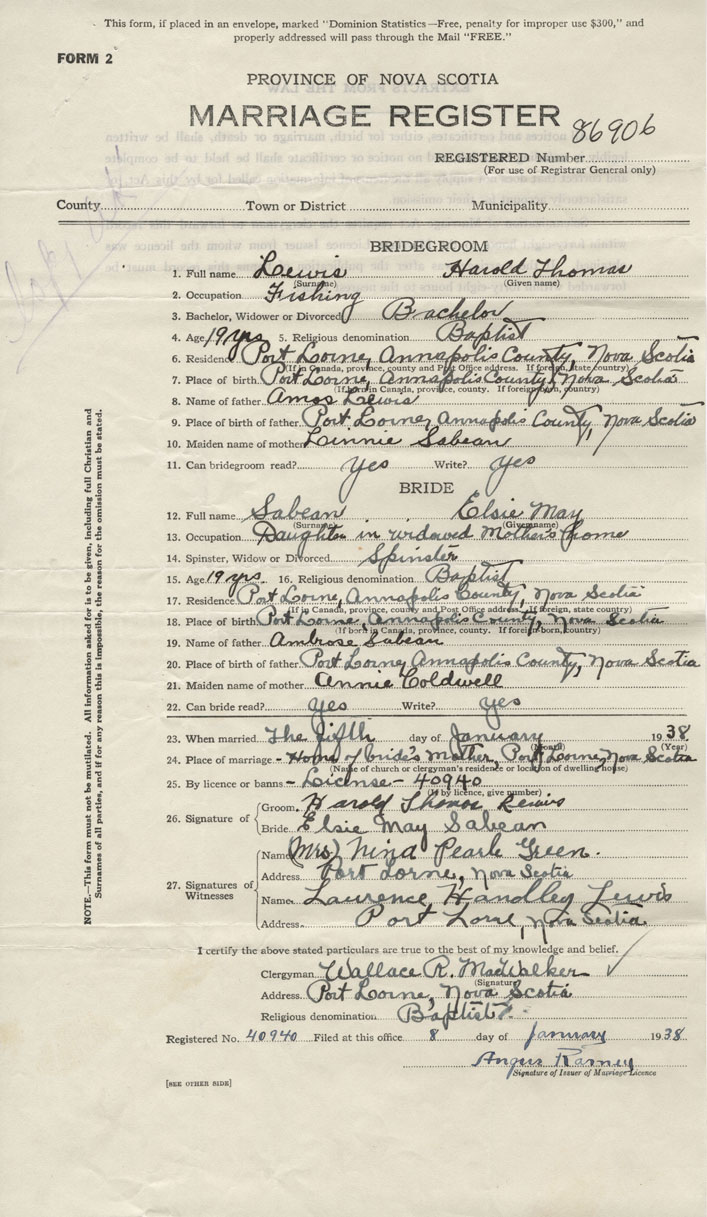 This form, if placed in an envelope, marked "Dominion Statistics—Free, penalty for improper use $300," and
properly addressed will pass through the Mail "FREE."
FORM 2
PROVINCE OF NOVA SCOTIA
MARRIAGE REGISTER
86906
REGISTERED Number
(For use of Registrar General only)
County Town or District Municipality
BRIDEGROOM
1. Full name Lewis Harold Thomas
(Surname) (Given name)
2. Occupation Fishing
3. Bachelor, Widower or Divorced Bachelor
4. Age 19 yrs 5. Religious denomination Baptist
6. Residence Port Lorne, Annapolis County, Nova Scotia
(If in Canada, province, county and Post Office address. If foreign, state country)
7. Place of birth Port Lorne, Annapolis County, Nova Scotia
(If born in Canada, province, county. If foreign-born, country)
8. Name of father Amos Lewis
9. Place of birth of father Port Lorne, Annapolis County, Nova Scotia
10. Maiden name of mother Linnie Sabean
11. Can bridegroom read? yes Write? yes
BRIDE
12. Full name Sabean Elsie May
(Surname) (Given name)
13. Occupation Daughter in widowed Mother's home
14. Spinster, Widow or Divorced Spinster
15. Age 19 yrs. 16. Religious denomination Baptist
17. Residence Port Lorne, Annapolis County, Nova Scotia
(If in Canada, province, county and Post Office address. If foreign, state country)
18. Place of birth Port Lorne, Annapolis County, Nova Scotia
(If born in Canada, province, county. If foreign-born, country)
19. Name of father Ambrose Sabean
20. Place of birth of father Port Lorne, Annapolis County, Nova Scotia
21. Maiden name of mother Annie Coldwell
22. Can bride read? yes Write? yes
23. When married The fifth day of January 1938
(Month) (Year)
24. Place of marriage - Home of bride's mother, Port Lorne, Nova Scotia
(Name of church or clergyman's residence or location of dwelling house)
25. By licence or banns - License - 40940
(If by licence, give number)
26. Signature of
Groom Harold Thomas Lewis
Bride Elsie May Sabean
27. Signatures of Witnesses
Name (Mrs) Nina Pearle Green.
Address Port Lorne, Nova Scotia
Name Laurence Handley Lewis
Address Port Lorne, Nova Scotia
I certify the above stated particulars are true to the best of my knowledge and belief.
Clergyman Wallace R. MacWalker
(Signature)
Address Port Lorne, Nova Scotia
Religious denomination Baptist
Registered No. 40940 Filed at this office 8 day of January 1938
Angus Ramey
Signature of Issuer of Marriage Licence
[SEE OTHER SIDE]
NOTE.—This form must not be mutilated. All information asked for is to be given, including full Christian and
Surnames of all parties, and if for any reason this is impossible, the reason for the omission must be stated.